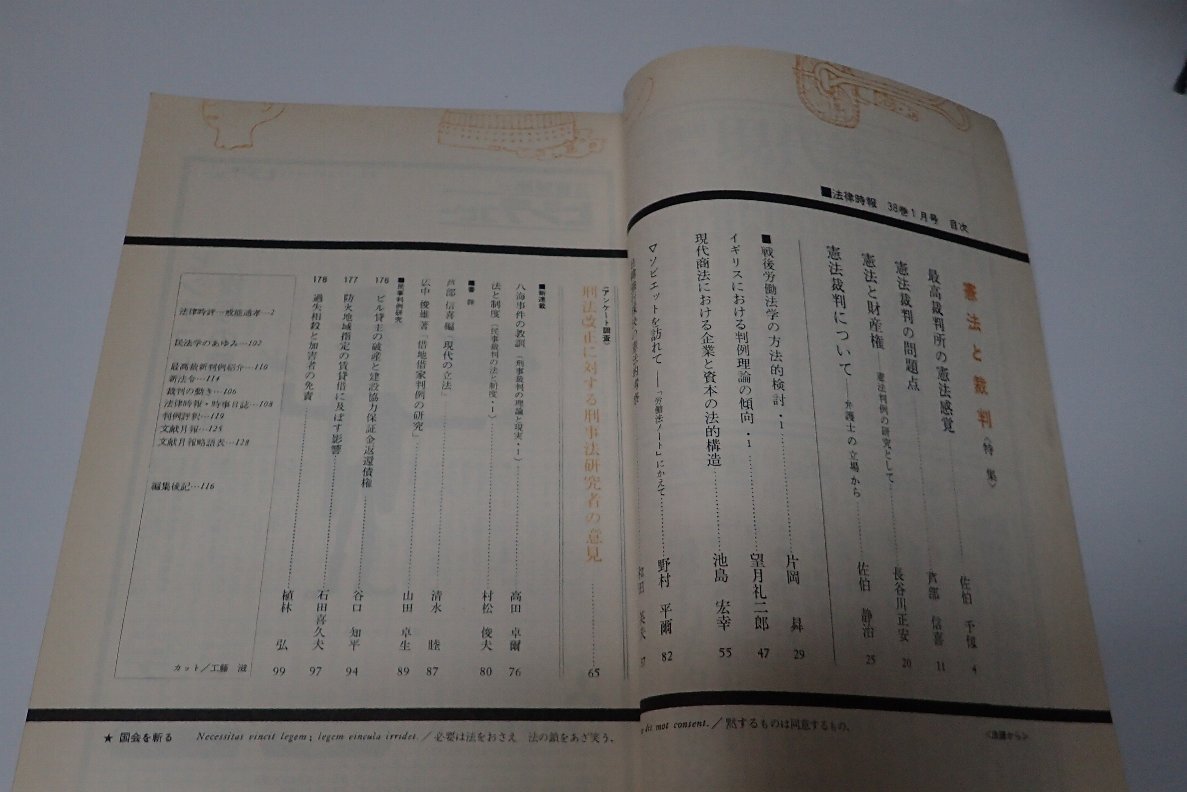 ■法律時報 38巻1月号 目次
憲法と裁判〈特集〉
最高裁判所の憲法感覚……佐伯 千仭 4
憲法裁判の問題点……芦部 信喜 11
憲法と財産権 憲法判例の研究として……長谷川正安 20
憲法裁判について――弁護士の立場から……佐伯 静治 25
■戦後労働法学の方法的検討・1……片岡 曻 29
イギリスにおける判例理論の傾向・1……望月礼二郎 47
現代商法における企業と資本の法的構造……池島 宏幸 55
▽ソビエットを訪れて――「労働法ノート」にかえて……野村 平爾 82
〈アンケート調査〉
刑法改正に対する刑事法研究者の意見……65
■新連載
八海事件の教訓（刑事裁判の理論と現実・1）……高田 卓爾 76
法と制度（民事裁判の法と制度・1）……村松 俊夫 80
■書評
芦部 信喜編「現代の立法」……清水 睦 87
広中 俊雄著「借地借家判例の研究」……山田 卓生 89
■民事判例研究
176 ビル貸主の破産と建設協力保証金返還債権……谷口 知平 94
177 防火地域指定の賃貸借に及ぼす影響……石田喜久夫 97
178 過失相殺と加害者の免責……植林 弘 99
法律時評―戒能通孝…2
民法学のあゆみ…102
最高裁新判例紹介…110
新法令…114
裁判の動き…106
法律時報・時事日誌…108
判例評釈…119
文献月報…125
文献月報略語表…128
編集後記…116
カット／工藤 滋
not consent.／黙するものは同意するもの。
〈法諺から〉
★ 国会を斬る Necessitas vincit legem; legem vincula irridet.／必要は法をおさえ 法の鎖をあざ笑う。